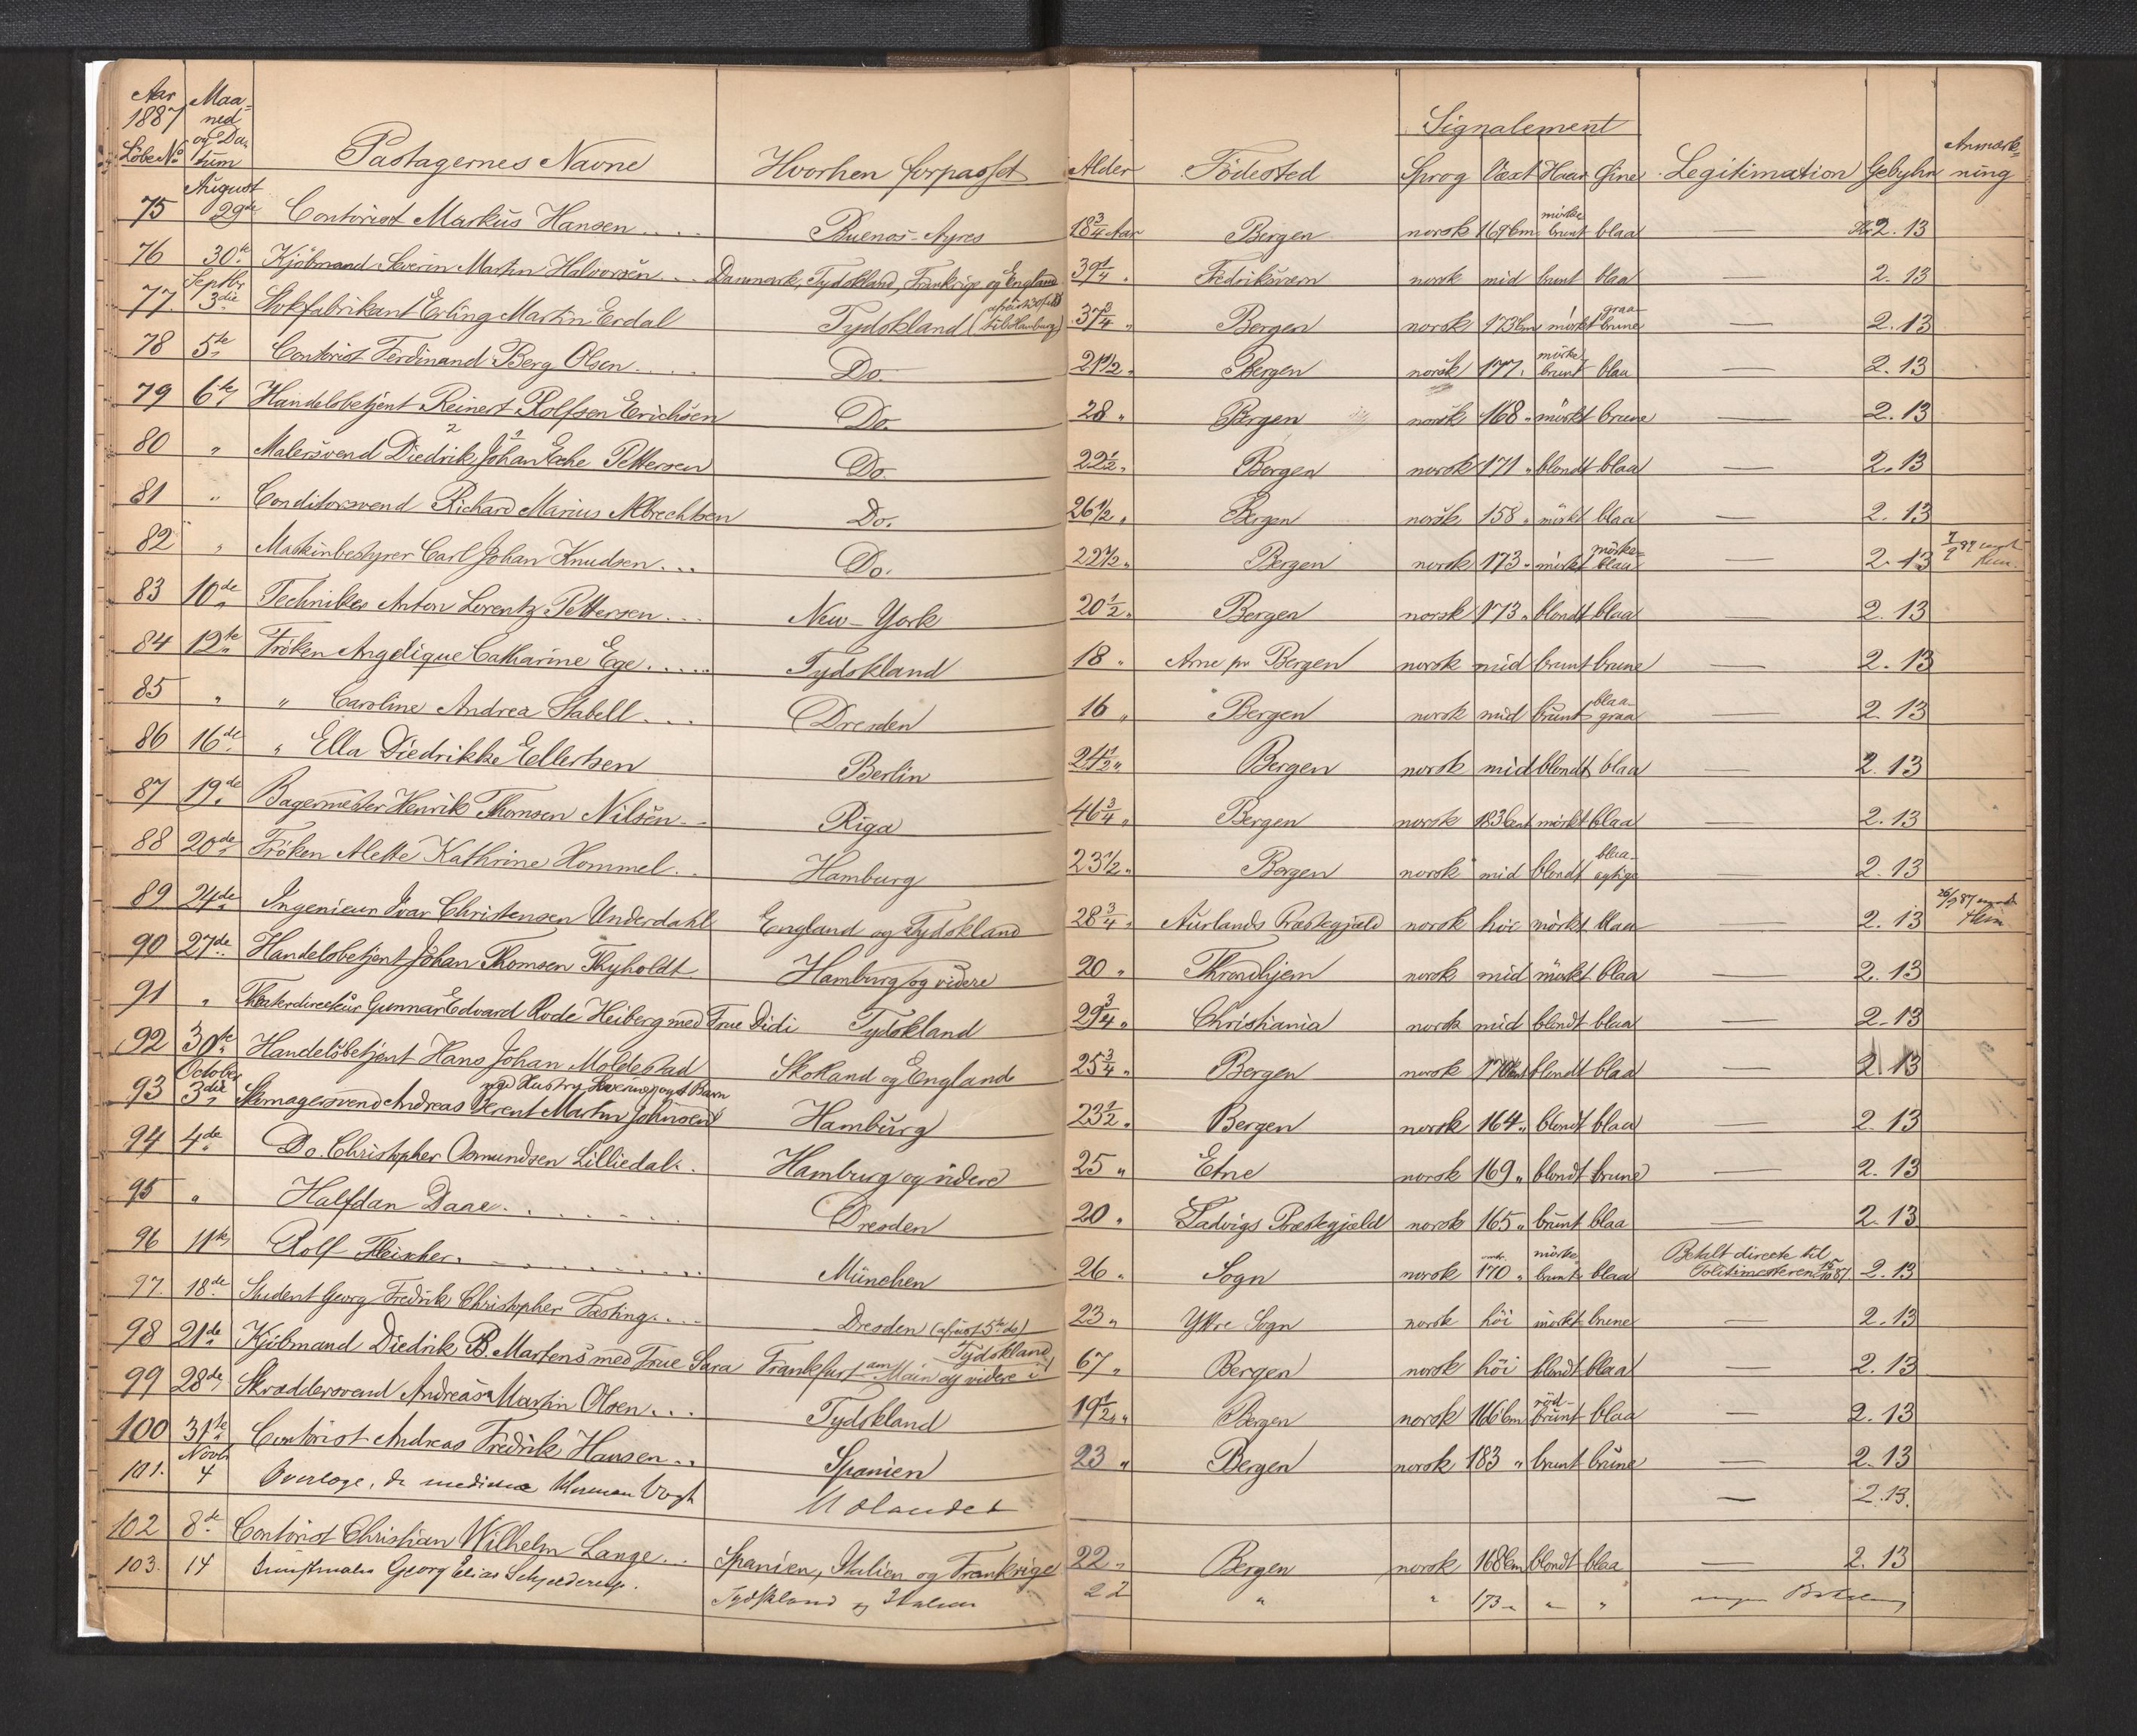 Aar 1887 Löbe No Maaned og Datum Passagernes Navne Hvorhen forpasset Alder Födested Signalement Sprog Växt Haar Öine Legitimation Gebyhr Anmærkning
75 August 29de Contorist Markus Hansen .... Buenos-Ayres 18 3/4 Aar Bergen norsk 169 cm mörkebrunt blaa — Kr 2.13
76 30te Kjöbmand Severin Martin Halvorsen ... Danmark, Tydskland, Frankrige og England 39 1/4 " Fredriksværn norsk mid brunt blaa — 2.13
77. Septbr 3die Stokfabrikant Erling Martin Erdal Tydskland (til Hamburg) 37 3/4 " Bergen norsk 173 cm mörkt graabrune — 2.13
78 5te Contorist Ferdinand Berg Olsen .... Do. 21 1/2 " Bergen norsk 177 " mörkebrunt blaa — 2.13
79 6te Handelsbetjent Reinert Rolfsen Erichsen Do. 28 " Bergen norsk 168 " mörkt brune — 2.13
80 " Malersvend Diedrik Johan Eche Pettersen Do. 22 1/2 " Bergen norsk 171 " blondt blaa — 2.13
81 " Conditorsvend Richard Marius Albrechtsen Do. 26 1/2 " Bergen norsk 158 " mörkt blaa — 2.13
82 " Maskinbestyrer Carl Johan Knudsen ... Do. 22 1/2 " Bergen norsk 173 " mörkt mörkeblaa — 2.13
83 10de Techniker Anton Lorentz Pettersen ... New-York 20 1/2 " Bergen norsk 173 " blondt blaa — 2.13
84 12te Fröken Angelique Catharine Ege ..... Tydskland 18 " Arne pr Bergen norsk mid brunt brune — 2.13
85 " " Caroline Andrea Stabell .... Dresden 16 " Bergen norsk mid brunt blaagraa — 2.13
86 16de " Ella Diedrikke Ellertsen Berlin 24 1/2 " Bergen norsk mid blondt blaa — 2.13
87 19de Bagermester Henrik Thomsen Nilsen .. Riga 46 3/4 " Bergen norsk 183 cent mörkt blaa — 2.13
88 20de Fröken Alette Kathrine Hommel .. Hamburg 23 1/2 " Bergen norsk mid blondt blaaagtige — 2.13
89 24de Ingenieur Ivar Christensen Underdahl England og Tydskland 28 3/4 " Aurlands Præstegjæld norsk höi mörkt blaa — 2.13
90 27de Handelsbetjent Johan Thomsen Thyholdt Hamburg og videre 20 " Throndhjem norsk mid mörkt blaa — 2.13
91 " Theaterdirecteur Gunnar Edvard Rode Heiberg med Frue Didi Tydskland 29 3/4 " Christiania norsk mid blondt blaa — 2.13
92 30te Handelsbetjent Hans Johan Moldestad Skotland og England 25 3/4 " Bergen norsk 170 cent blondt blaa — 2.13
93 October 3die Skomagersvend Andreas Berent Martin Johnsen med Hustru og et Barn Hamburg 23 1/2 " Bergen norsk 164 " blondt blaa — 2.13
94 4de Do. Christopher Osmundsen Lilliedal .. Hamburg og videre 25 " Etne norsk 169 " blondt brune — 2.13
95 " Halfdan Daae ....... Dresden 20 " Ladvigs Præstegjæld norsk 165 " brunt blaa — 2.13
96 11te Rolf Fleischer ......... München 26 " Sogn norsk 170 " mörkebrunt blaa Betalt directe til Politimesteren 2.13
97. 18de Student Georg Fredrik Christopher Fasting .... Dresden 23 " Yttre Sogn norsk höi mörkt brune — 2.13
98 21de Kjöbmand Diedrik B. Martens med Frue Sara Frankfurt am Main og videre i Tydskland 67 " Bergen norsk höi blondt blaa — 2.13
99 28de Skræddersvend Andreas Martin Olsen ... Tydskland 19 1/2 " Bergen norsk 166 cm rödbrunt blaa — 2.13
100 31te Contorist Andreas Fredrik Hansen .. Spanien 23 " Bergen norsk 183 " brunt brune — 2.13
101. Novbr 4 Overlæge, Dr medicinæ Herman Vogt Udlandet — 2.13.
102 8de Contorist Christian Wilhelm Lange ... Spanien, Italien og Frankrige 22 " Bergen norsk 168 cm blondt blaa — 2.13
103. 14 Kunstmaler Georg Elias Schjelderup. Tydskland og Italien 22 " " 173 " " " ingen Betaling